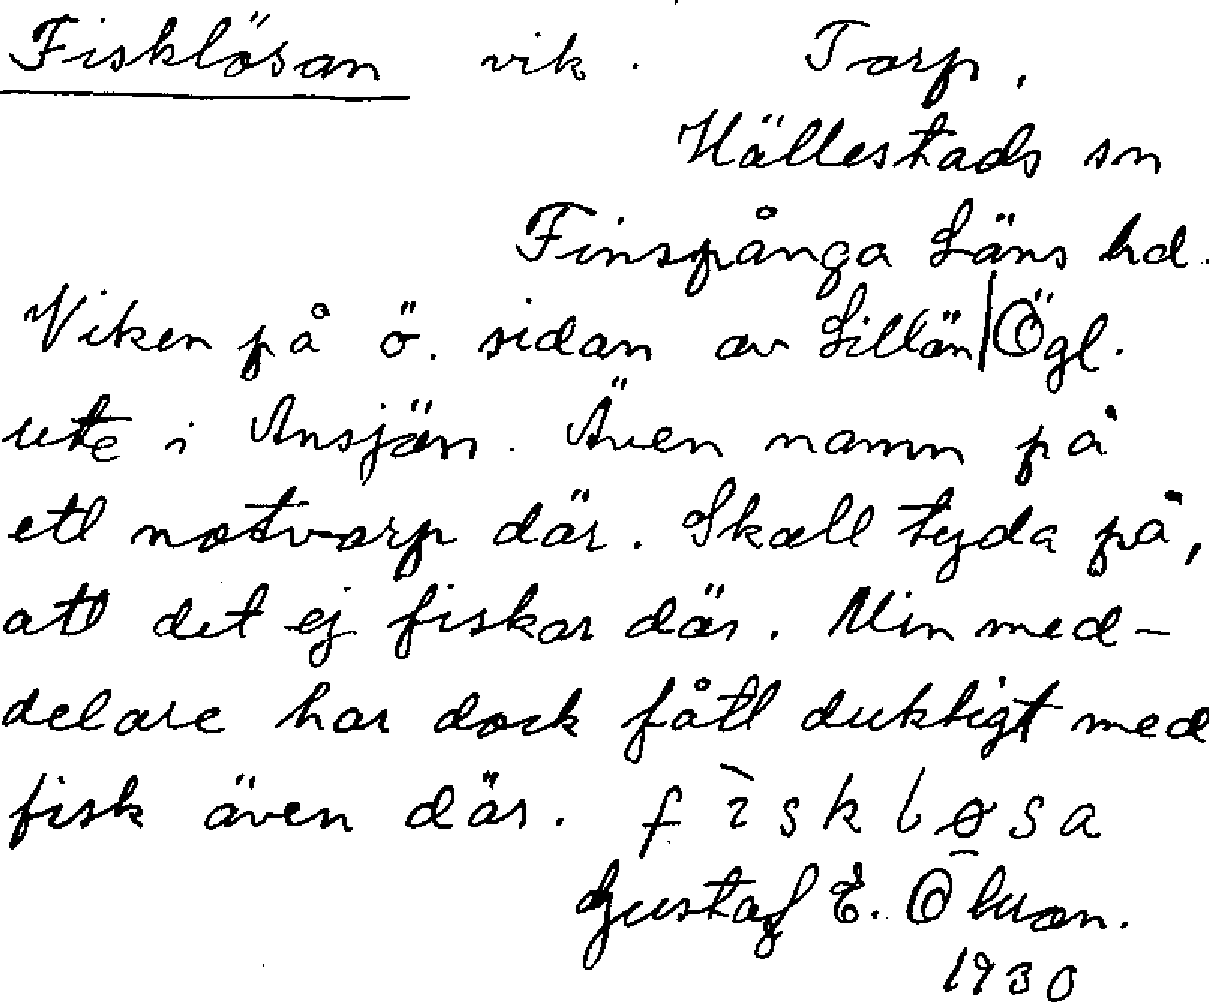 Fisklösan vik. Torp,
Hällestads sn
Finspånga Läns hd.
Viken på ö. sidan av Lillön | Ögl.
ute i Ansjön. Även namn på
ett notvarp där. Skall tyda på,
att det ej fiskar där. Min med-
delare har dock fått duktigt med
fisk även där. fiskløsa
Gustaf E.
1930